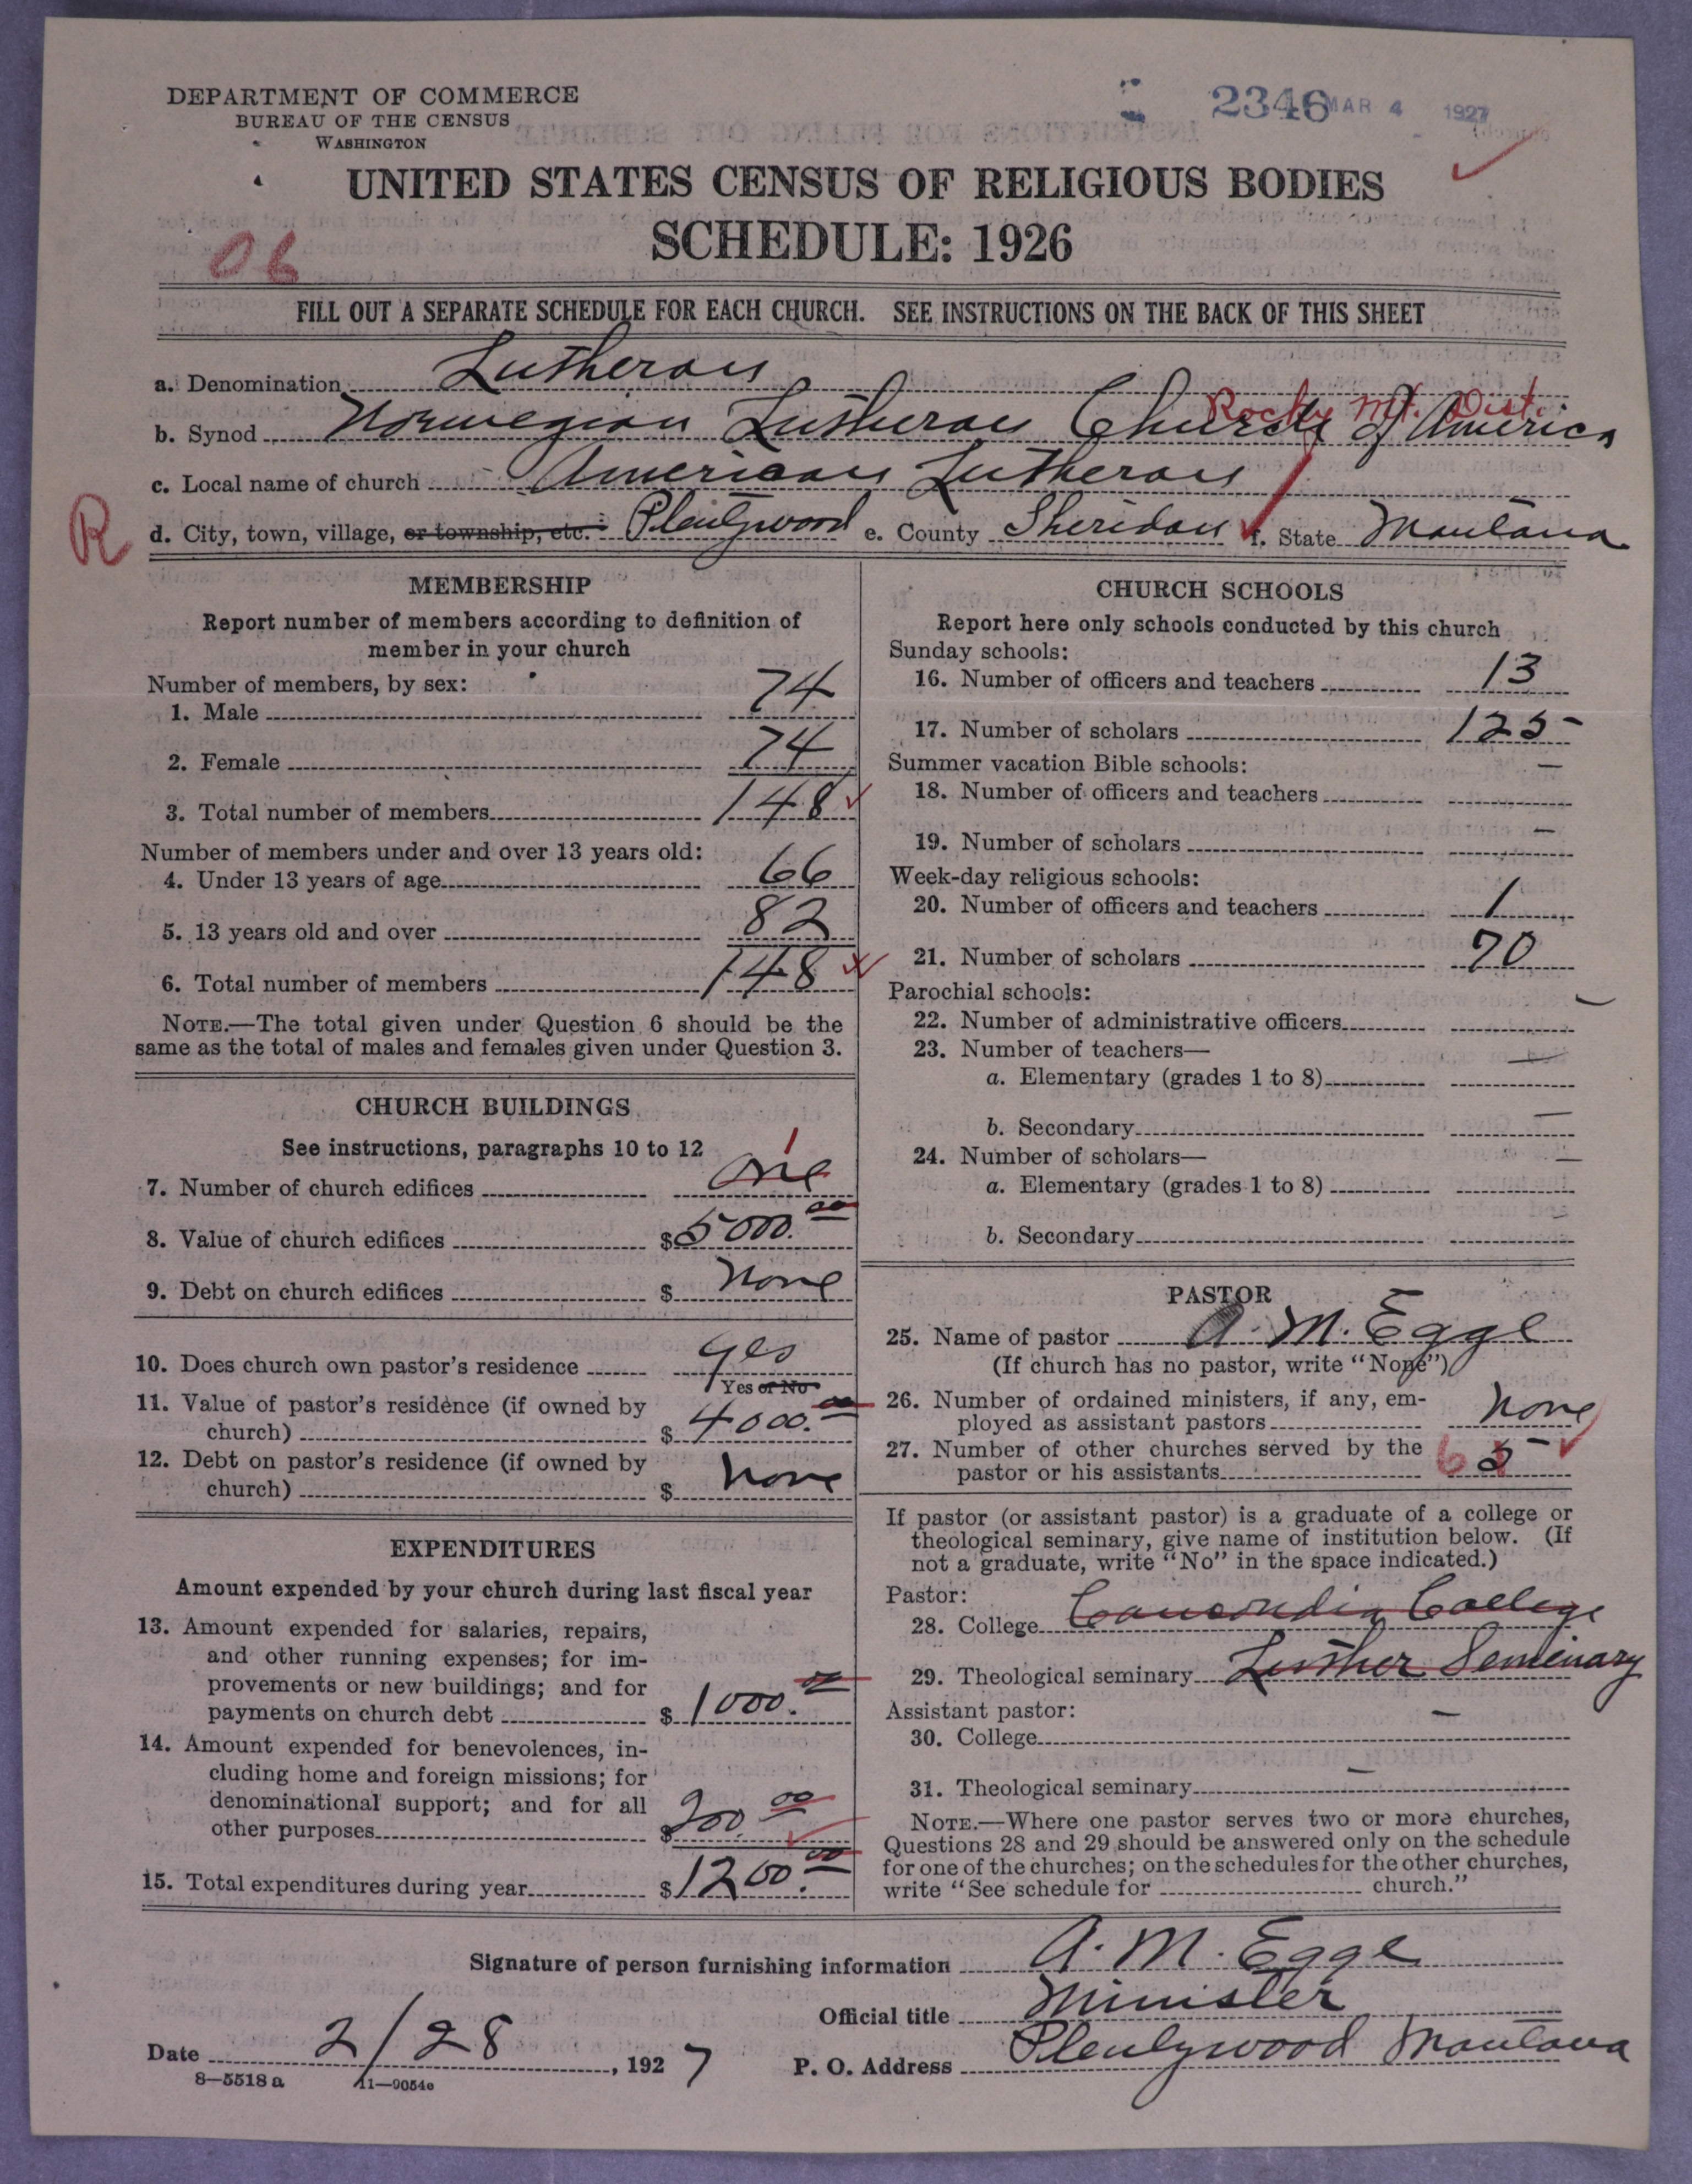 DEPARTMENT OF COMMERCE
BUREAU OF THE CENSUS
WASHINGTON
2346 MAR 4 1927
UNITED STATES CENSUS OF RELIGIOUS BODIES
SCHEDULE: 1926
06
FILL OUT A SEPARATE SCHEDULE FOR EACH CHURCH. SEE INSTRUCTIONS ON THE BACK OF THIS SHEET
a. Denomination Lutheran
Rocky Mt. Dist.
b. Synod Norwegian Lutheran Church of America
c. Local name of church American Lutheran
R
d. City, town, village, or township, etc. Plentywood e. County Sheridan f. State Montana
MEMBERSHIP
Report number of members according to definition of
member in your church
Number of members, by sex:
1. Male 74
2. Female 74
3. Total number of members 148
Number of members under and over 13 years old:
4. Under 13 years of age 66
5. 13 years old and over 82
6. Total number of members 148
NOTE.—The total given under Question 6 should be the
same as the total of males and females given under Question 3.
CHURCH BUILDINGS
See instructions, paragraphs 10 to 12
1
7. Number of church edifices One
8. Value of church edifices $ 5000.00
9. Debt on church edifices $ None
10. Does church own pastor's residence yes
Yes or No
11. Value of pastor's residence (if owned by
church) $ 4000.00
12. Debt on pastor's residence (if owned by
church) $ None
EXPENDITURES
Amount expended by your church during last fiscal year
13. Amount expended for salaries, repairs,
and other running expenses; for im-
provements or new buildings; and for
payments on church debt $ 1000.00
14. Amount expended for benevolences, in-
cluding home and foreign missions; for
denominational support; and for all
other purposes $ 200.00
15. Total expenditures during year $ 1200.00
CHURCH SCHOOLS
Report here only schools conducted by this church
Sunday schools:
16. Number of officers and teachers 13
17. Number of scholars 125
Summer vacation Bible schools:
18. Number of officers and teachers —
19. Number of scholars —
Week-day religious schools:
20. Number of officers and teachers 1
21. Number of scholars 70
Parochial schools:
22. Number of administrative officers —
23. Number of teachers—
a. Elementary (grades 1 to 8) —
b. Secondary —
24. Number of scholars—
a. Elementary (grades 1 to 8) —
b. Secondary —
PASTOR
25. Name of pastor A. M. Egge
(If church has no pastor, write "None")
26. Number of ordained ministers, if any, em-
ployed as assistant pastors None
27. Number of other churches served by the
pastor or his assistants 6 5
If pastor (or assistant pastor) is a graduate of a college or
theological seminary, give name of institution below. (If
not a graduate, write "No" in the space indicated.)
Pastor:
28. College Concordia College
29. Theological seminary Luther Seminary
Assistant pastor:
30. College —
31. Theological seminary —
NOTE.—Where one pastor serves two or more churches,
Questions 28 and 29 should be answered only on the schedule
for one of the churches; on the schedules for the other churches,
write "See schedule for church."
Signature of person furnishing information A. M. Egge
Official title Minister
Date 2/28, 1927
P. O. Address Plentywood Montana
8—5518 a 11—9054e